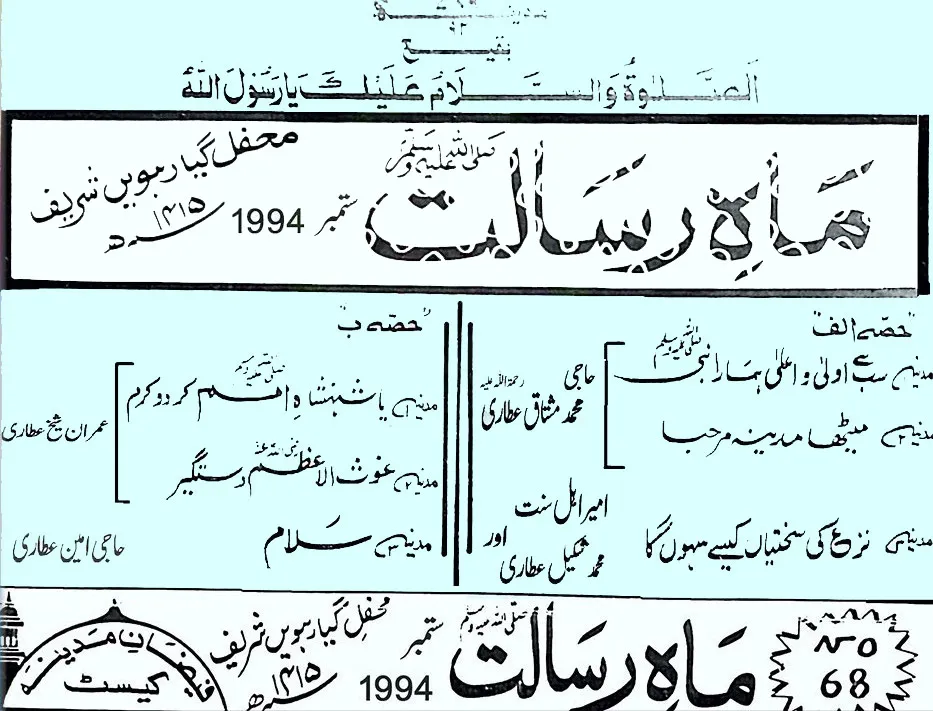 ۷۸۶
مدینہ
۹۲
بقیع
اَلصَّلٰوۃُ وَالسَّلَامُ عَلَیْکَ یَارَسُوْلَ اللّٰہ
ماہِ رسالت صلی اللہ علیہ وسلم
ستمبر 1994
محفل گیارہویں شریف
۱۴۱۵ھ
"حصہ الف"
مدینہ ۱ سب سے اولیٰ و اعلیٰ ہمارا نبی صلی اللہ علیہ وسلم
مدینہ ۲ میٹھا مدینہ مرحبا
حاجی محمد مشتاق عطاری رحمۃ اللہ علیہ
مدینہ ۳ نزع کی سختیاں کیسے سہوں گا
امیر اہل سنت
اور
محمد شکیل عطاری
"حصہ ب"
مدینہ ۱ یا شہنشاہِ امم صلی اللہ علیہ وسلم کر دو کرم
مدینہ ۲ غوث الاعظم رضی اللہ عنہ دستگیر
عمران شیخ عطاری
مدینہ ۳ سَلام
حاجی امین عطاری
NO
68
ماہِ رسالت صلی اللہ علیہ وسلم
ستمبر 1994
محفل گیارہویں شریف
۱۴۱۵ھ
فیضانِ مدینہ
کیسٹ